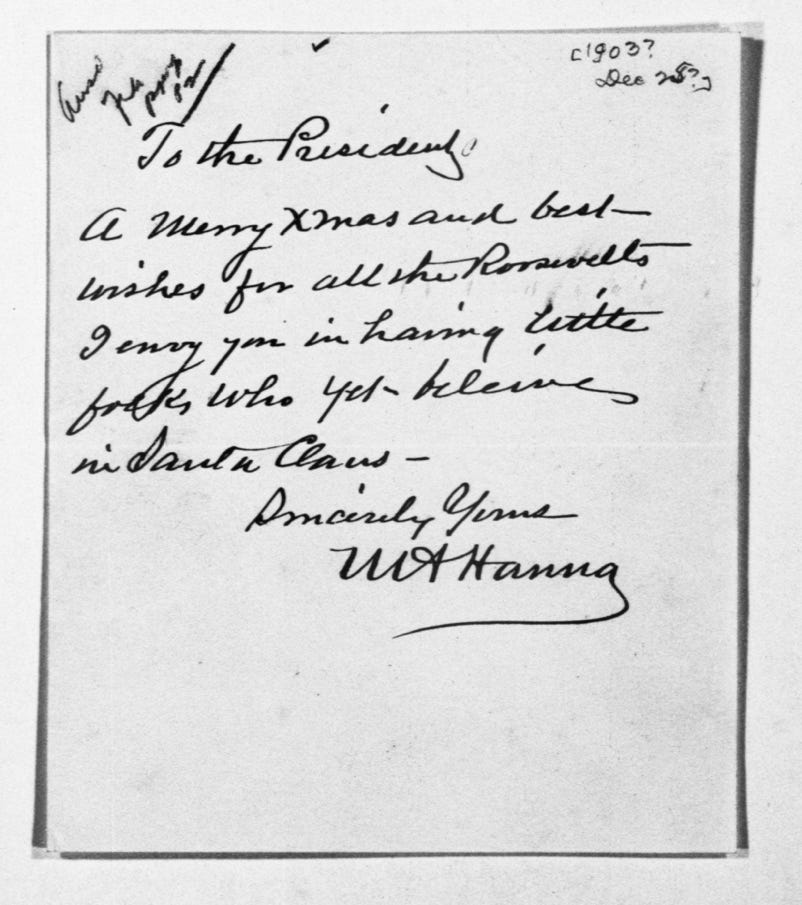 [1903?
Dec 25?]
To the President
A Merry Xmas and best
wishes for all the Roosevelts
I envy you in having little
folks who yet beleive
in Santa Claus –
Sincerely Yours
MAHanna